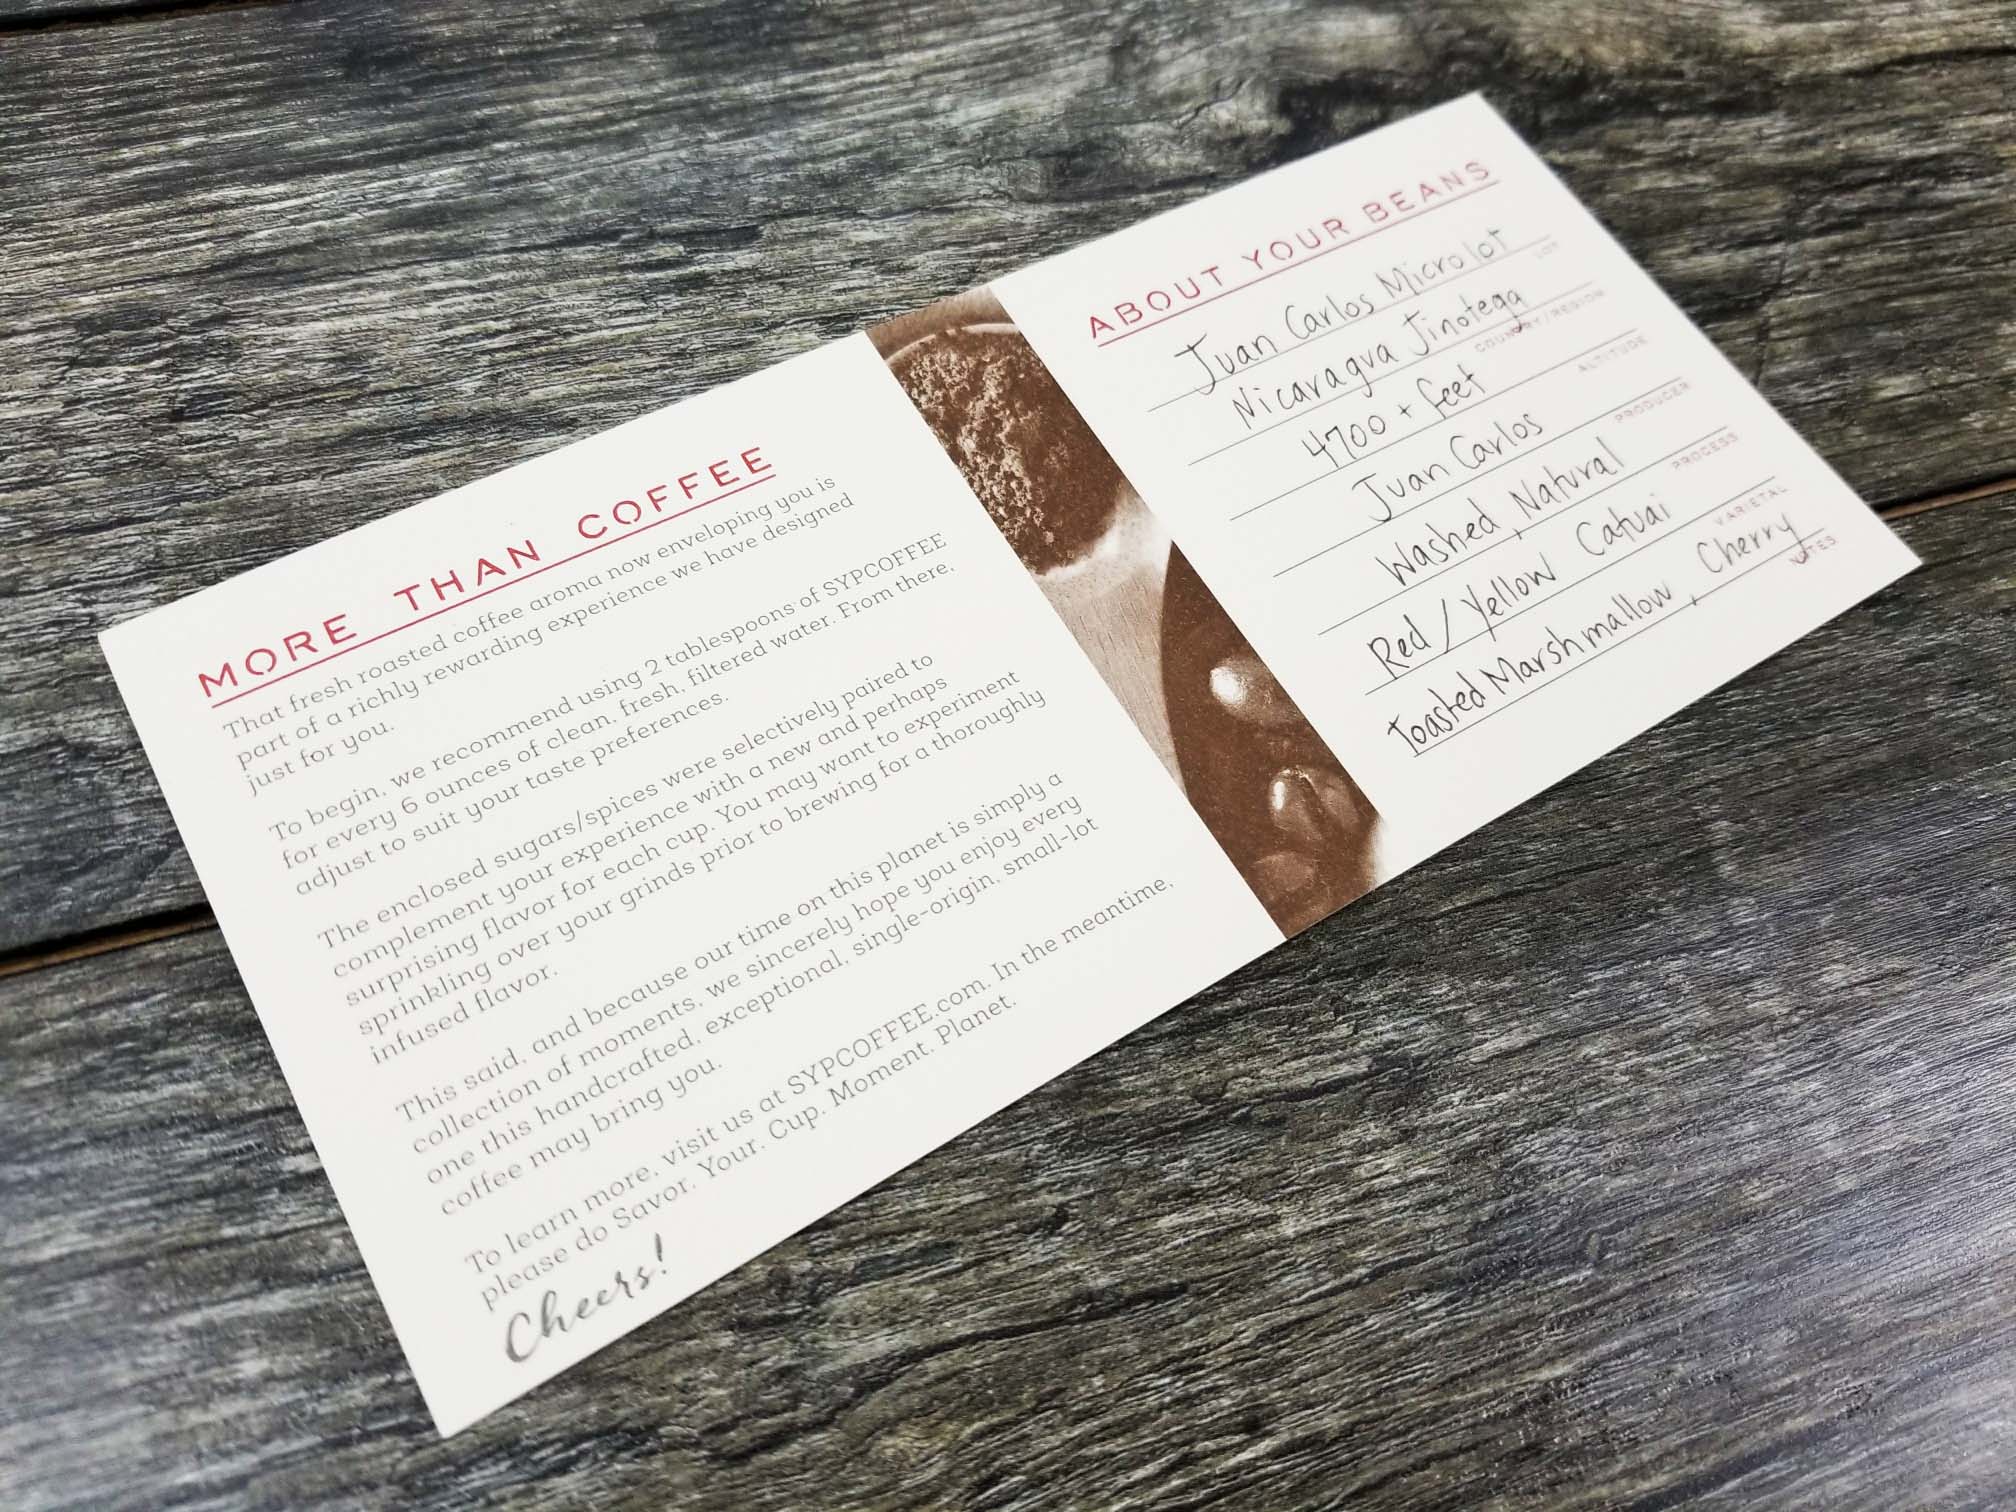 MORE THAN COFFEE
That fresh roasted coffee aroma now enveloping you is
part of a richly rewarding experience we have designed
just for you.
To begin, we recommend using 2 tablespoons of SYPCOFFEE
for every 6 ounces of clean, fresh, filtered water. From there,
adjust to suit your taste preferences.
The enclosed sugars/spices were selectively paired to
complement your experience with a new and perhaps
surprising flavor for each cup. You may want to experiment
sprinkling over your grinds prior to brewing for a thoroughly
infused flavor.
This said, and because our time on this planet is simply a
collection of moments, we sincerely hope you enjoy every
one this handcrafted, exceptional, single-origin, small-lot
coffee may bring you.
To learn more, visit us at SYPCOFFEE.com. In the meantime,
please do Savor. Your. Cup. Moment. Planet.
Cheers!
ABOUT YOUR BEANS
Juan Carlos Microlot LOT
Nicaragua Jinotega COUNTRY/REGION
4700 + feet ALTITUDE
Juan Carlos PRODUCER
Washed, Natural PROCESS
Red/Yellow Catuai VARIETAL
Toasted Marshmallow, Cherry NOTES